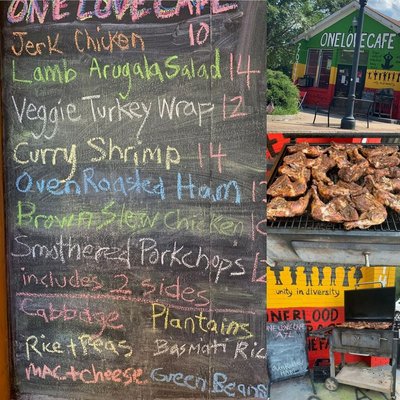 ONE LOVE CAFE
Jerk Chicken 10
Lamb Arugala Salad 14
Veggie Turkey Wrap 12
Curry Shrimp 14
Oven Roasted Ham
Brown Stew Chicken
Smothered Porkchops
includes 2 sides
Cabbage Plantains
Rice + Peas Basmati Ric
Mac + Cheese Green Beans
ONE LOVE CAFE
unity in diversity
ONE BLOOD